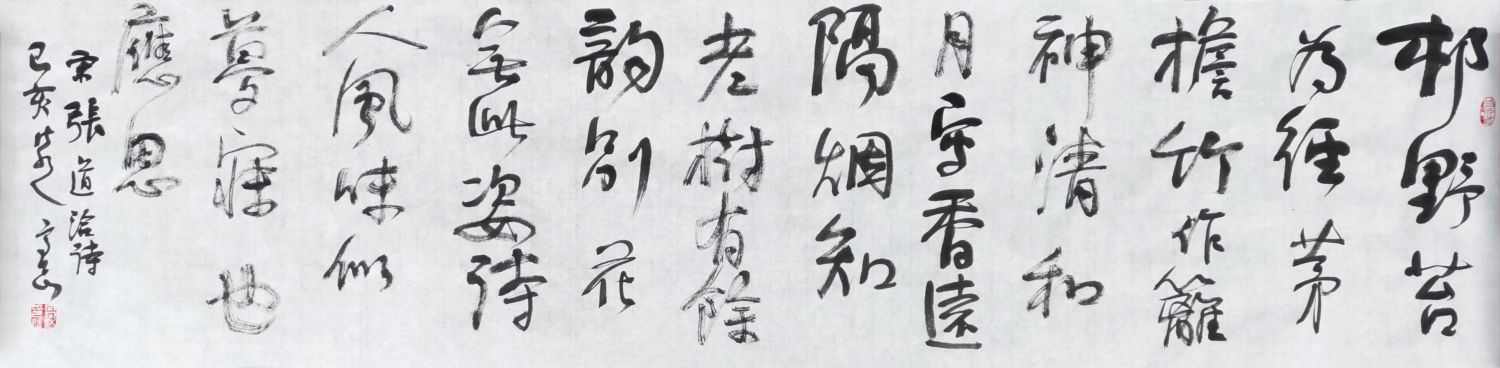 邨野苔
為徑茅
檐竹作籬
神清和
月寫香遠
隔烟知
老樹有餘
韵別花
無此姿詩
人風味似
夢寐也
應思
宋張道洽詩
己亥